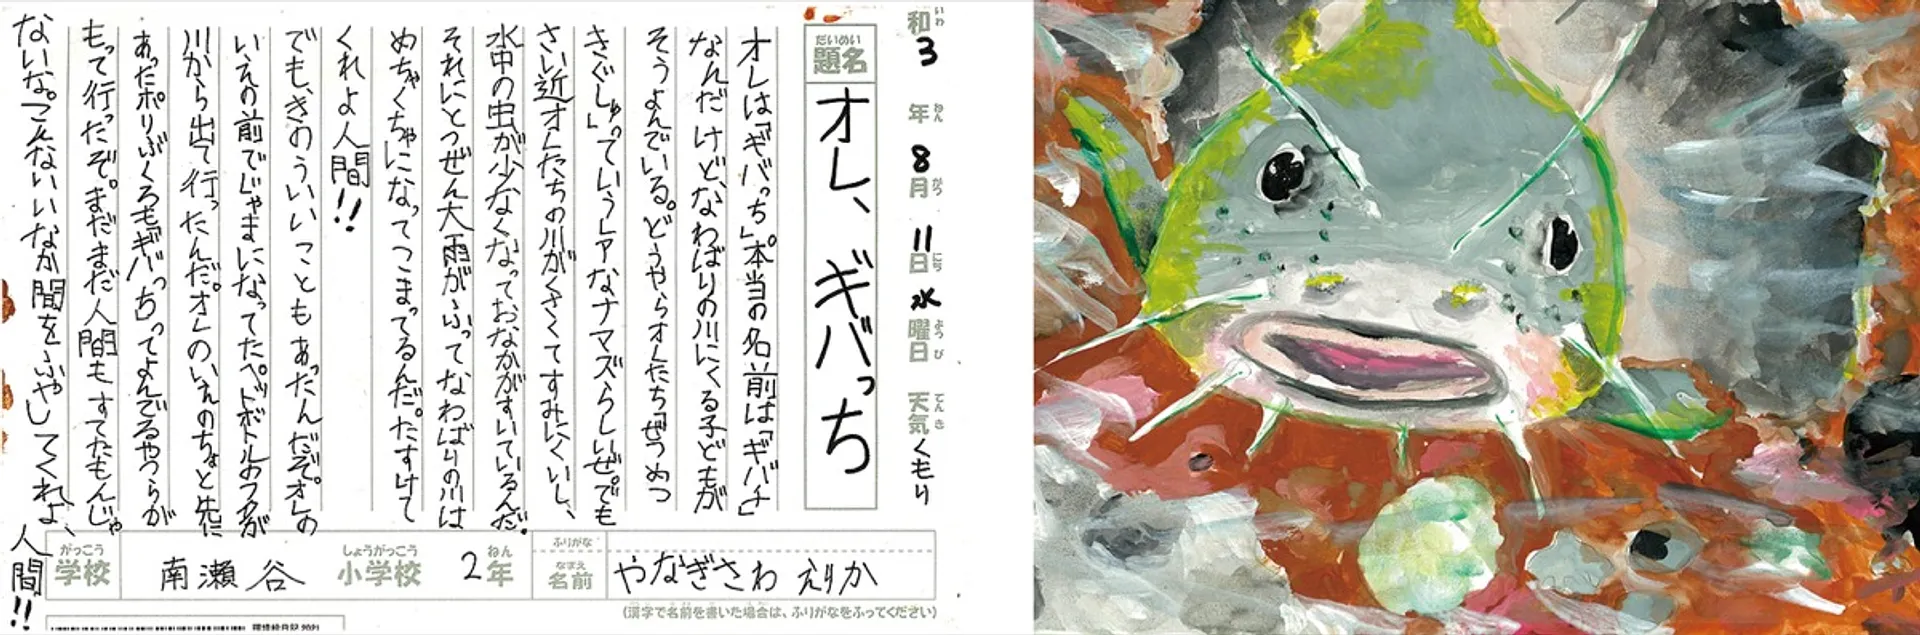 和3年8月11日水曜日 天気くもり
題名 オレ、ギバっち
オレは「ギバっち」。本当の名前は「ギバチ」
なんだけど、なわばりの川にくる子どもが
そうよんでいる。どうやらオレたち「ぜつめつ
きぐしゅ」っていうレアなナマズらしいぜ。でも
さい近オレたちの川がくさくてすみにくいし、
水中の虫が少なくなっておなかがすいているんだ。
それにとつぜん大雨がふってなわばりの川は
めちゃくちゃになってこまってるんだ。たすけて
くれよ人間!!
でも、きのういいこともあったんだぞ。オレの
いえの前でじゃまになってたペットボトルのフタが
川から出て行ったんだ。オレのいえのちょと先に
あったポリぶくろも「ギバっち」ってよんでるやつらが
もって行ったぞ。まだまだ人間もすてたもんじゃ
ないな。こんないいなか間をふやしてくれよ、人間!!
学校 南瀬谷 小学校 2年 名前 やなぎさわ えりか
(漢字で名前を書いた場合は、ふりがなをふってください)
環境絵日記 2021